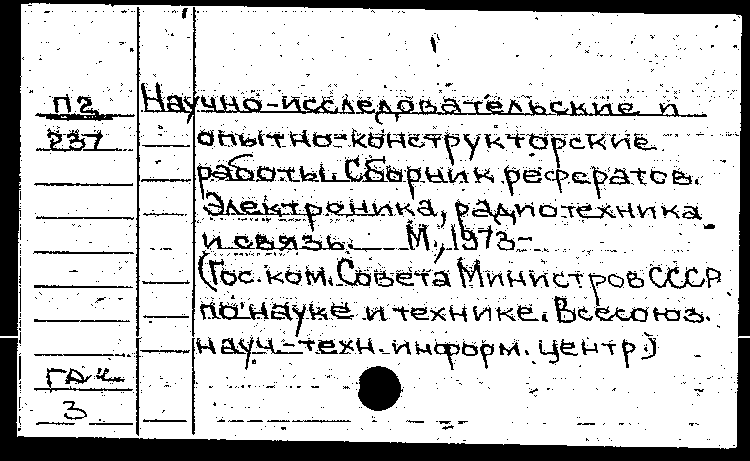 П2
237
Научно-исследовательские и
опытно-конструкторские
работы. Сборник рефератов.
Электроника, радиотехника
и связь. М., 1973-
(Гос. ком. Совета Министров СССР
по науке и технике. Всесоюз.
науч.-техн. информ. центр.)
3